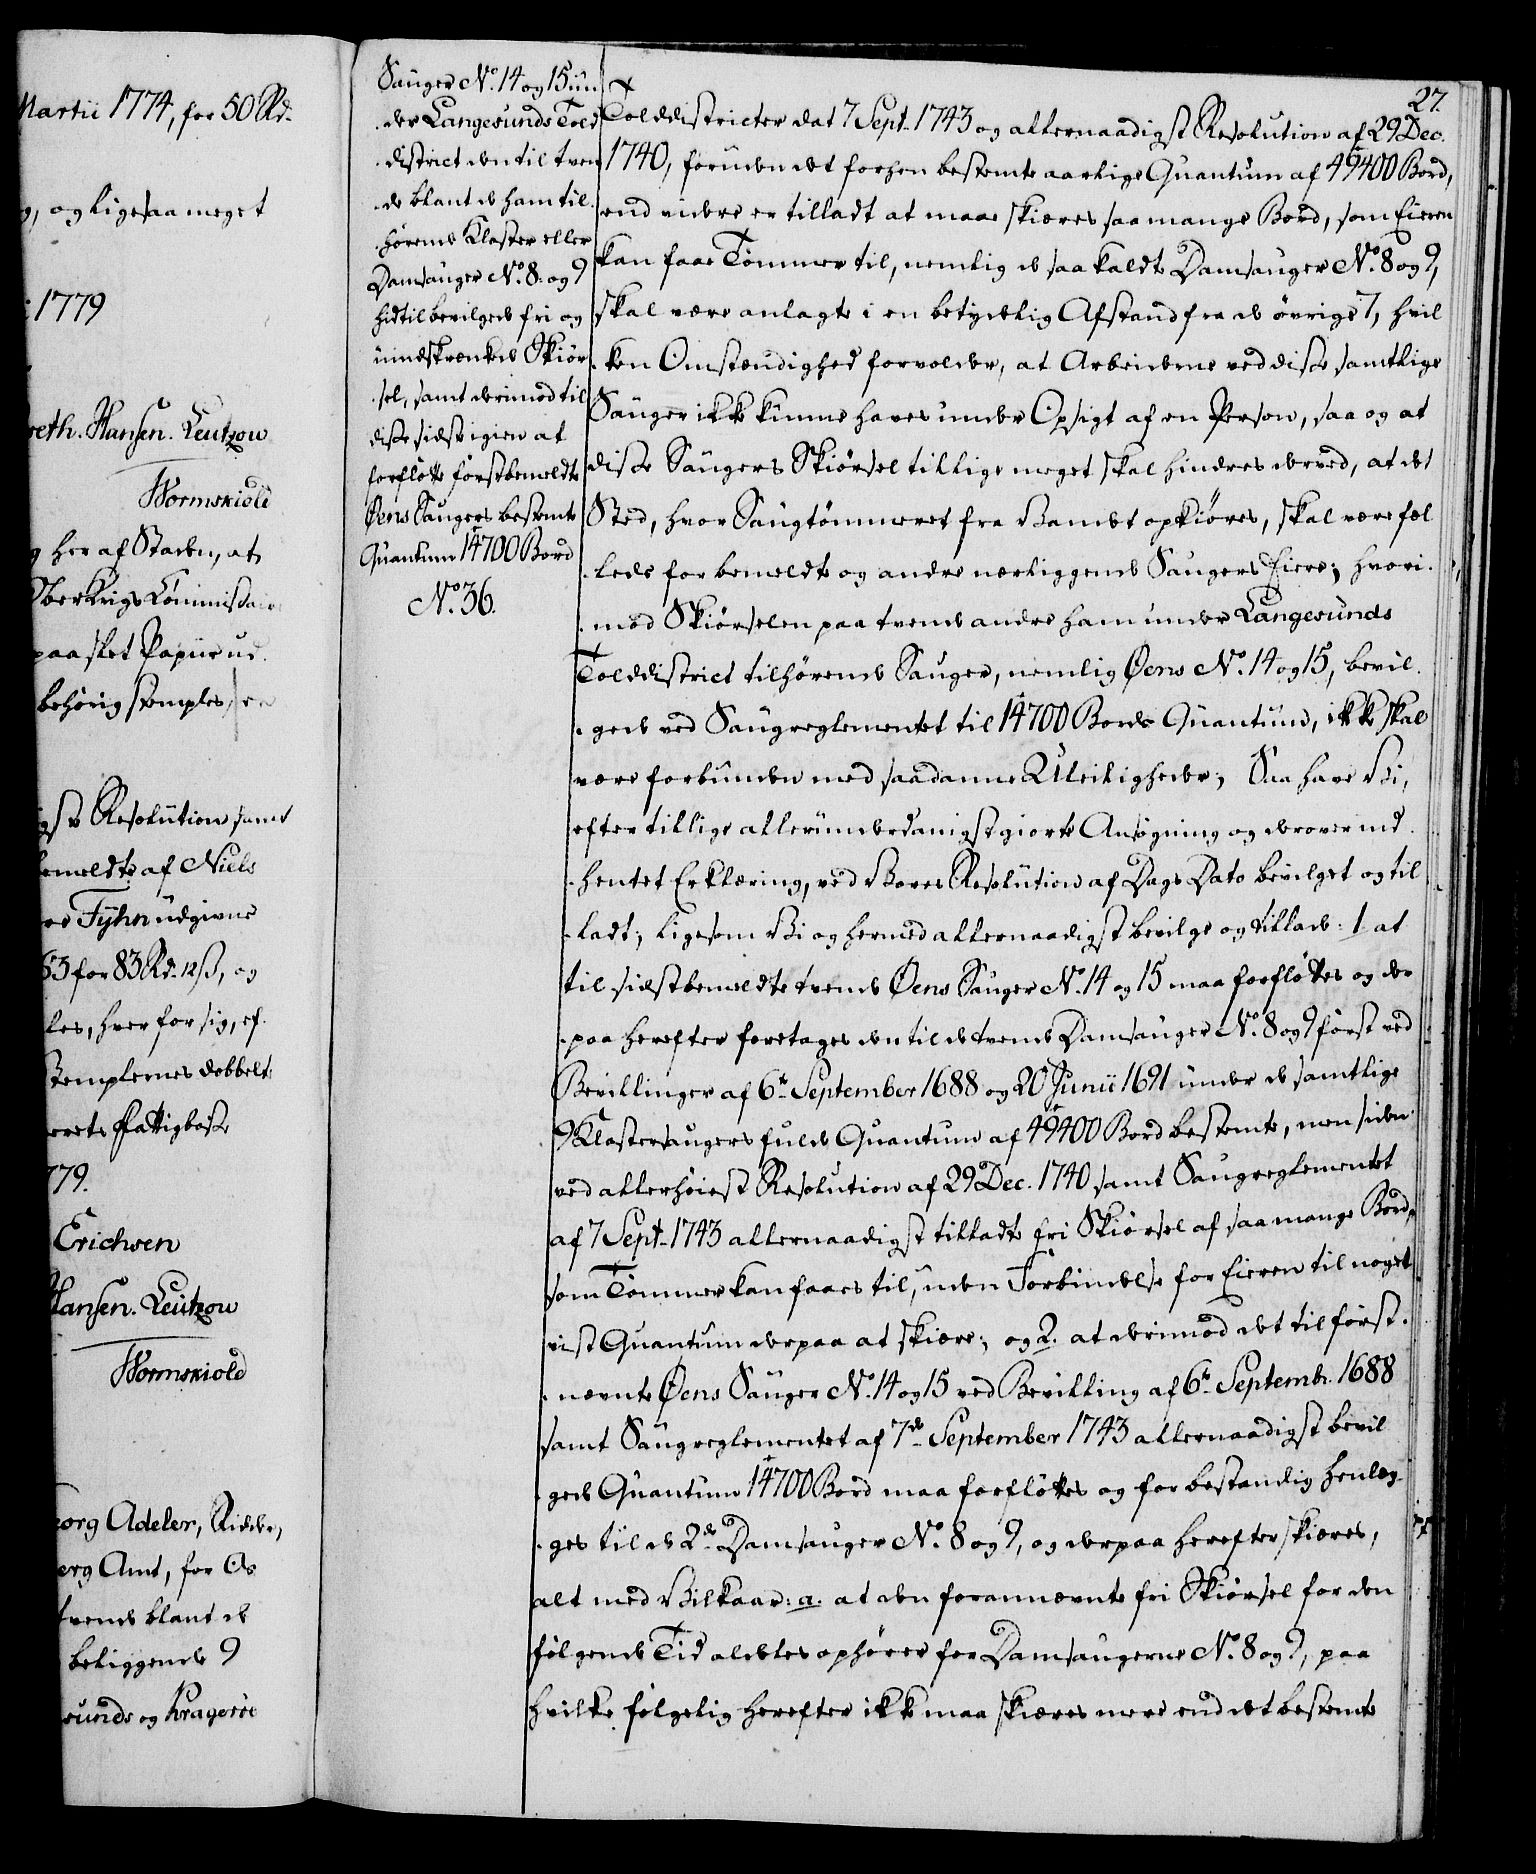 Martii 1774, for 50 Rd.
og ligesaa meget
1779
Hansen. Leutzow
Wormskiold
her af Staden, at
Ober Krigs Commissair
paa slet Papiir ud
behørig stemples, en
Resolution samt
bemeldte af Niels
Tyhn udgivne
63 for 83 Rd. 12 ß, og
les, hver for sig, ef
Stemplernes dobbelt
Fattigbøsse
779.
Erichsen
Hansen. Leutzow
Wormskiold
Georg Adeler, Ridder,
berg Amt, for Os
tvende blant de
beliggende 9
sunds og Kragerøe
Sauger No. 14 og 15 un
der Langesunds Told
district den til tven
de blant de ham til
hørende Kloster eller
Damsauger No. 8 og 9
hidtil bevilgede fri og
uindskrænkede Skiør
sel, samt derimod til
disse sidst igien at
forfløtte førstbemeldte
Øens Saugers bestemte
Quantum 14700 Bord
No. 36.
27.
Tolddistricter dat 7 Sept. 1743 og allernaadigst Resolution af 29 Dec.
1740, foruden det forhen bestemte aarlige Quantum af 49400 Bord,
end videre er tilladt at maae skiæres saa mange Bord, som Eieren
kan faae Tømmer til, nemlig de saa kaldte Damsauger No. 8 og 9,
skal være anlagte i en betydelig Afstand fra de øvrige 7, hvil
ken Omstændighed forvolder, at Arbeiderne ved disse samtlige
Sauger ikke kunne haves under Opsigt af en Person, saa og at
disse Saugers Skiørsel tillige meget skal hindres derved, at det
Sted, hvor Saugtømmeret fra Vandet opkiøres, skal være fæl
leds for bemeldte og andre nærliggende Saugers Eiere; hvori
mod Skiørselen paa tvende andre ham under Langesunds
Tolddistrict tilhørende Sauger, nemlig Øens No. 14 og 15, bevil
gede ved Saugreglementet til 14700 Bords Quantum, ikke skal
være forbunden med saadanne Uleiligheder; Saa have Vi,
efter tillige allerunderdanigst giorte Ansøgning og derover ind
hentet Erklæring, ved Vores Resolution af Dags Dato bevilget og til
ladt, ligesom Vi og hermed allernaadigst bevilge og tillade: 1. at
til sidstbemeldte tvende Øens Sauger No. 14 og 15 maa forfløttes og der
paa herefter foretages den til de tvende Damsauger No. 8 og 9 først ved
Bevillinger af 6te September 1688 og 20 Junii 1691 under de samtlige
9 Klostersaugers fulde Quantum af 49400 Bord bestemte, men siden
ved allerhøiest Resolution af 29 Dec. 1740 samt Saugreglementet
af 7 Sept. 1743 allernaadigst tilladte fri Skiørsel af saa mange Bord,
som Tømmer kan faaes til, uden Forbindelse for Eieren til noget
vist Quantum derpaa at skiære; og 2. at derimod det til først
nævnte Øens Sauger No. 14 og 15 ved Bevilling af 6te Septembr. 1688
samt Saugreglementet af 7de September 1743 allernaadigst bevil
gede Quantum 14700 Bord maa forfløttes og for bestandig henlæg
ges til de 2de Damsauger No. 8 og 9, og derpaa herefter skiæres,
alt med Vilkaar: a. at den forannævnte fri Skiørsel for den
følgende Tid aldeles ophører for Damsaugerne No. 8 og 9, paa
hvilke følgelig herefter ikke maa skiæres mere end det bestemte